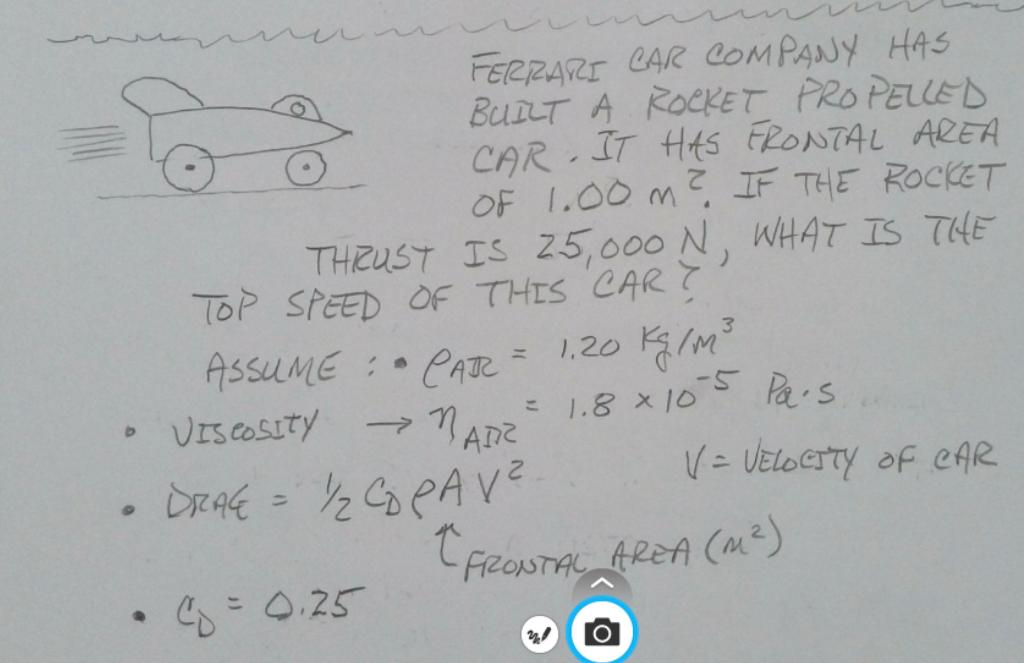 FERRARI CAR COMPANY HAS
BUILT A ROCKET PROPELLED
CAR. IT HAS FRONTAL AREA
OF 1.00 m². IF THE ROCKET
THRUST IS 25,000 N, WHAT IS THE
TOP SPEED OF THIS CAR?
ASSUME : • ρAIR = 1.20 Kg/m³
• VISCOSITY → ηAIR = 1.8 × 10⁻⁵ Pa·s
V = VELOCITY OF CAR
• DRAG = 1/2 CD ρ A V²
↑ FRONTAL AREA (m²)
• CD = 0.25